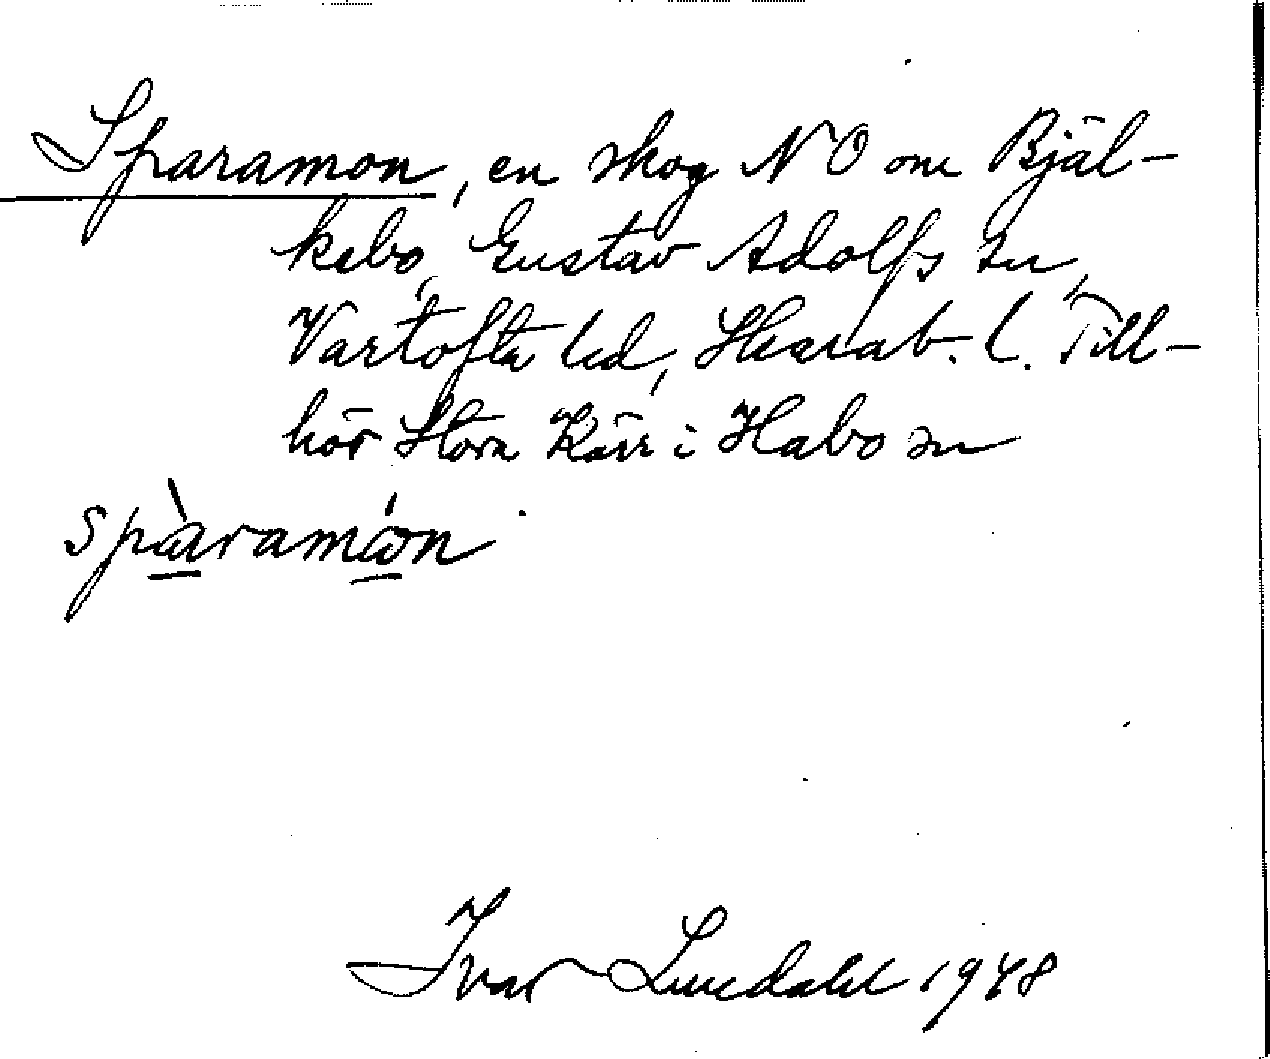 Sparamon, en skog NO om Bjäl-
kebo, Gustav Adolfs sn,
Vartofta hd, Skarab. l. Till-
hör Stora Kärr i Habo sn
spàramón
Ivar Lundahl 1948